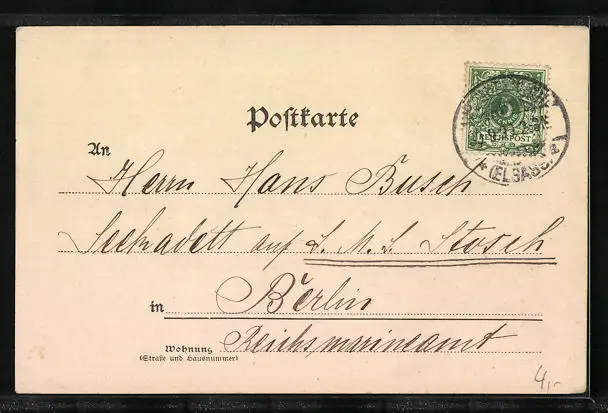 Postkarte
5
REICHSPOST
* (ELSASS)
An
Herrn Hans Busch
Seekadett auf S. M. S. Stosch
in Berlin
Wohnung Reichsmarineamt
(Straße und Hausnummer)
4,-